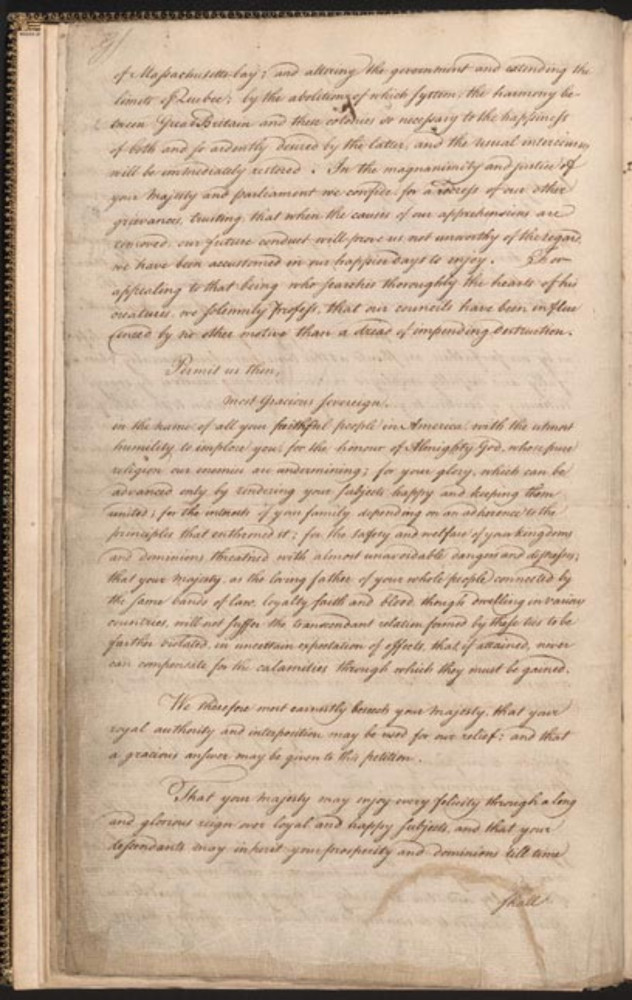 of Massachusetts bay; and altering the government and extending the
limits of Quebec; by the abolition of which system, the harmony be-
tween Great Britain and these colonies so necessary to the happiness
of both and so ardently desired by the latter, and the usual intercourses
will be immediately restored. In the magnanimity and justice of
your Majesty and parliament we confide, for a redress of our other
grievances, trusting, that when the causes of our apprehensions are
removed, our future conduct will prove us not unworthy of the regard,
we have been accustomed in our happier days to enjoy. For
appealing to that being who searches thoroughly the hearts of his
creatures, we solemnly profess, that our councils have been influ
enced by no other motive than a dread of impending destruction.
Permit us then,
most gracious sovereign,
in the name of all your faithful people in America with the utmost
humility to implore you, for the honour of Almighty God, whose pure
religion our enemies are undermining; for your glory, which can be
advanced only by rendering your subjects happy and keeping them
united; for the interests of your family depending on an adherence to the
principles that enthroned it; for the safety and welfare of your kingdoms
and dominions threatned with almost unavoidable dangers and distresses;
that your majesty, as the loving father of your whole people connected by
the same bands of law, loyalty faith and blood, though dwelling in various
countries, will not suffer the transcendant relation formed by these ties to be
farther violated, in uncertain expectation of effects, that, if attained, never
can compensate for the calamities through which they must be gained.
We therefore most earnestly beseech your majesty, that your
royal authority and interposition may be used for our relief: and that
a gracious answer may be given to this petition.
That your majesty may enjoy every felicity through a long
and glorious reign over loyal and happy subjects, and that your
descendants may inherit your prosperity and dominions till time
shall